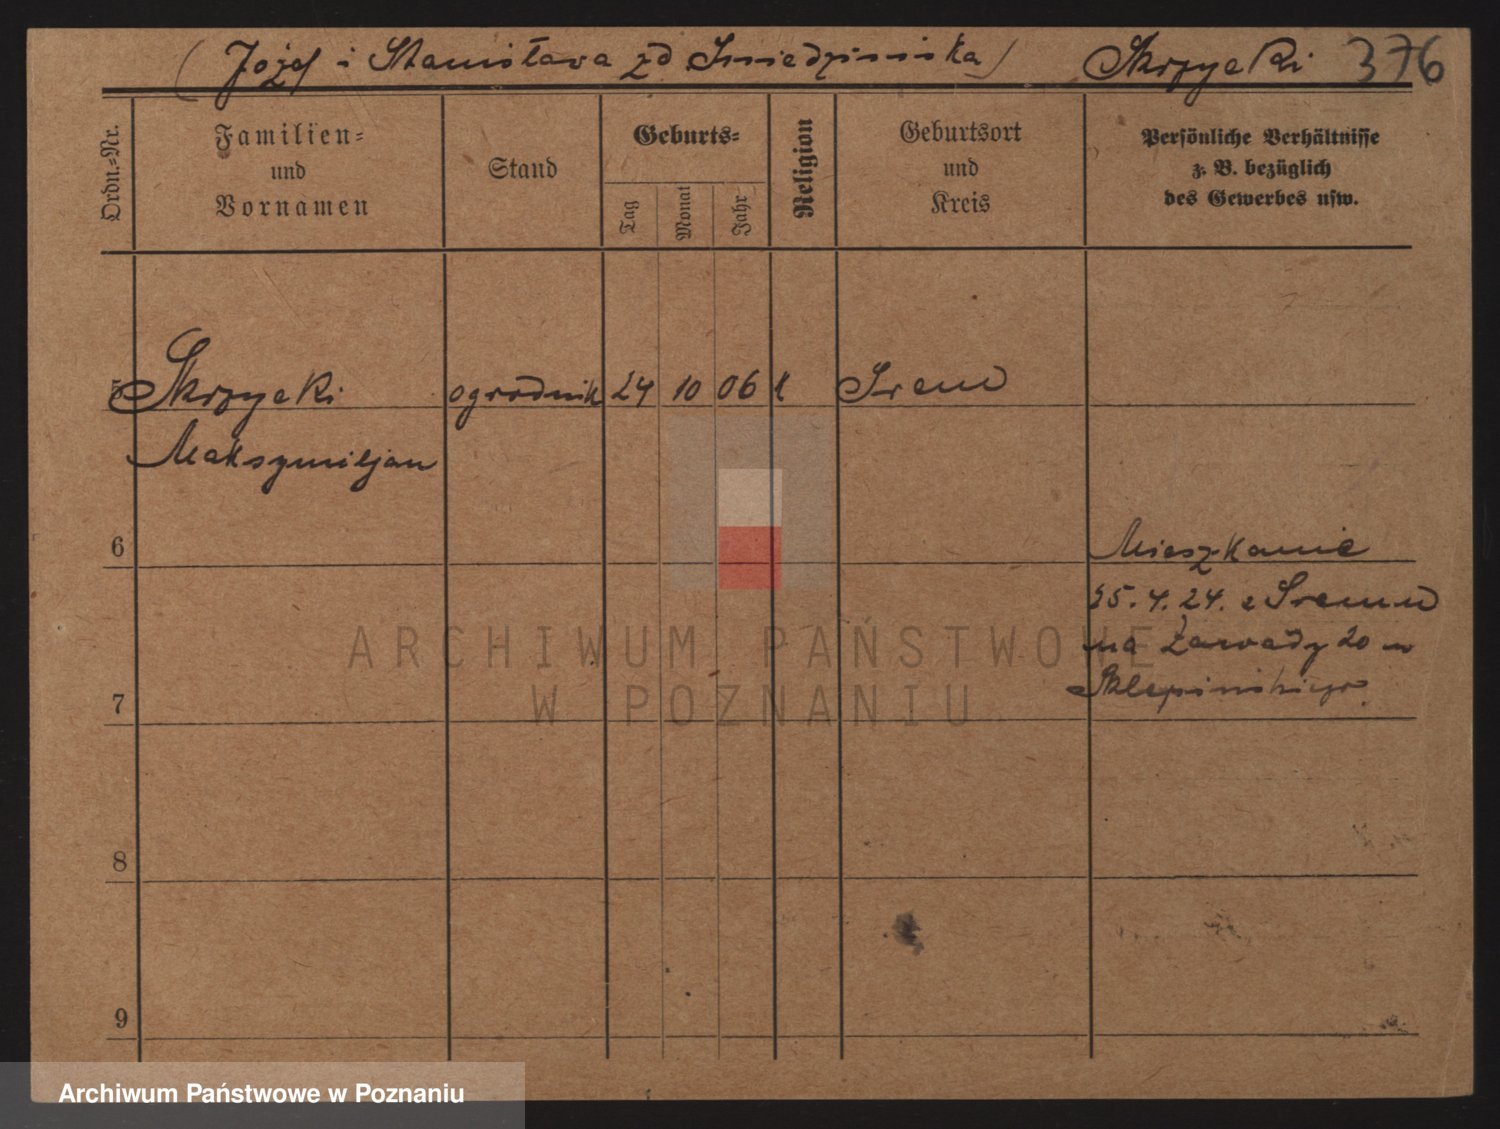 (Józef i Stanisława zd Śmiedzińska) Skrzycki 376
Ordn.=Nr.
Familien=
und
Vornamen
Stand
Geburts=
Tag
Monat
Jahr
Religion
Geburtsort
und
Kreis
Persönliche Verhältnisse
z. B. bezüglich
des Gewerbes usw.
5 Skrzycki ogrodnik 24 10 06 k Śrem
Maksymiljan
6
Mieszkanie
25.4.24. z Śremu
na Zawady 20 u
Sklepińskiego.
7
8
9
ARCHIWUM PAŃSTWOWE
W POZNANIU
Archiwum Państwowe w Poznaniu